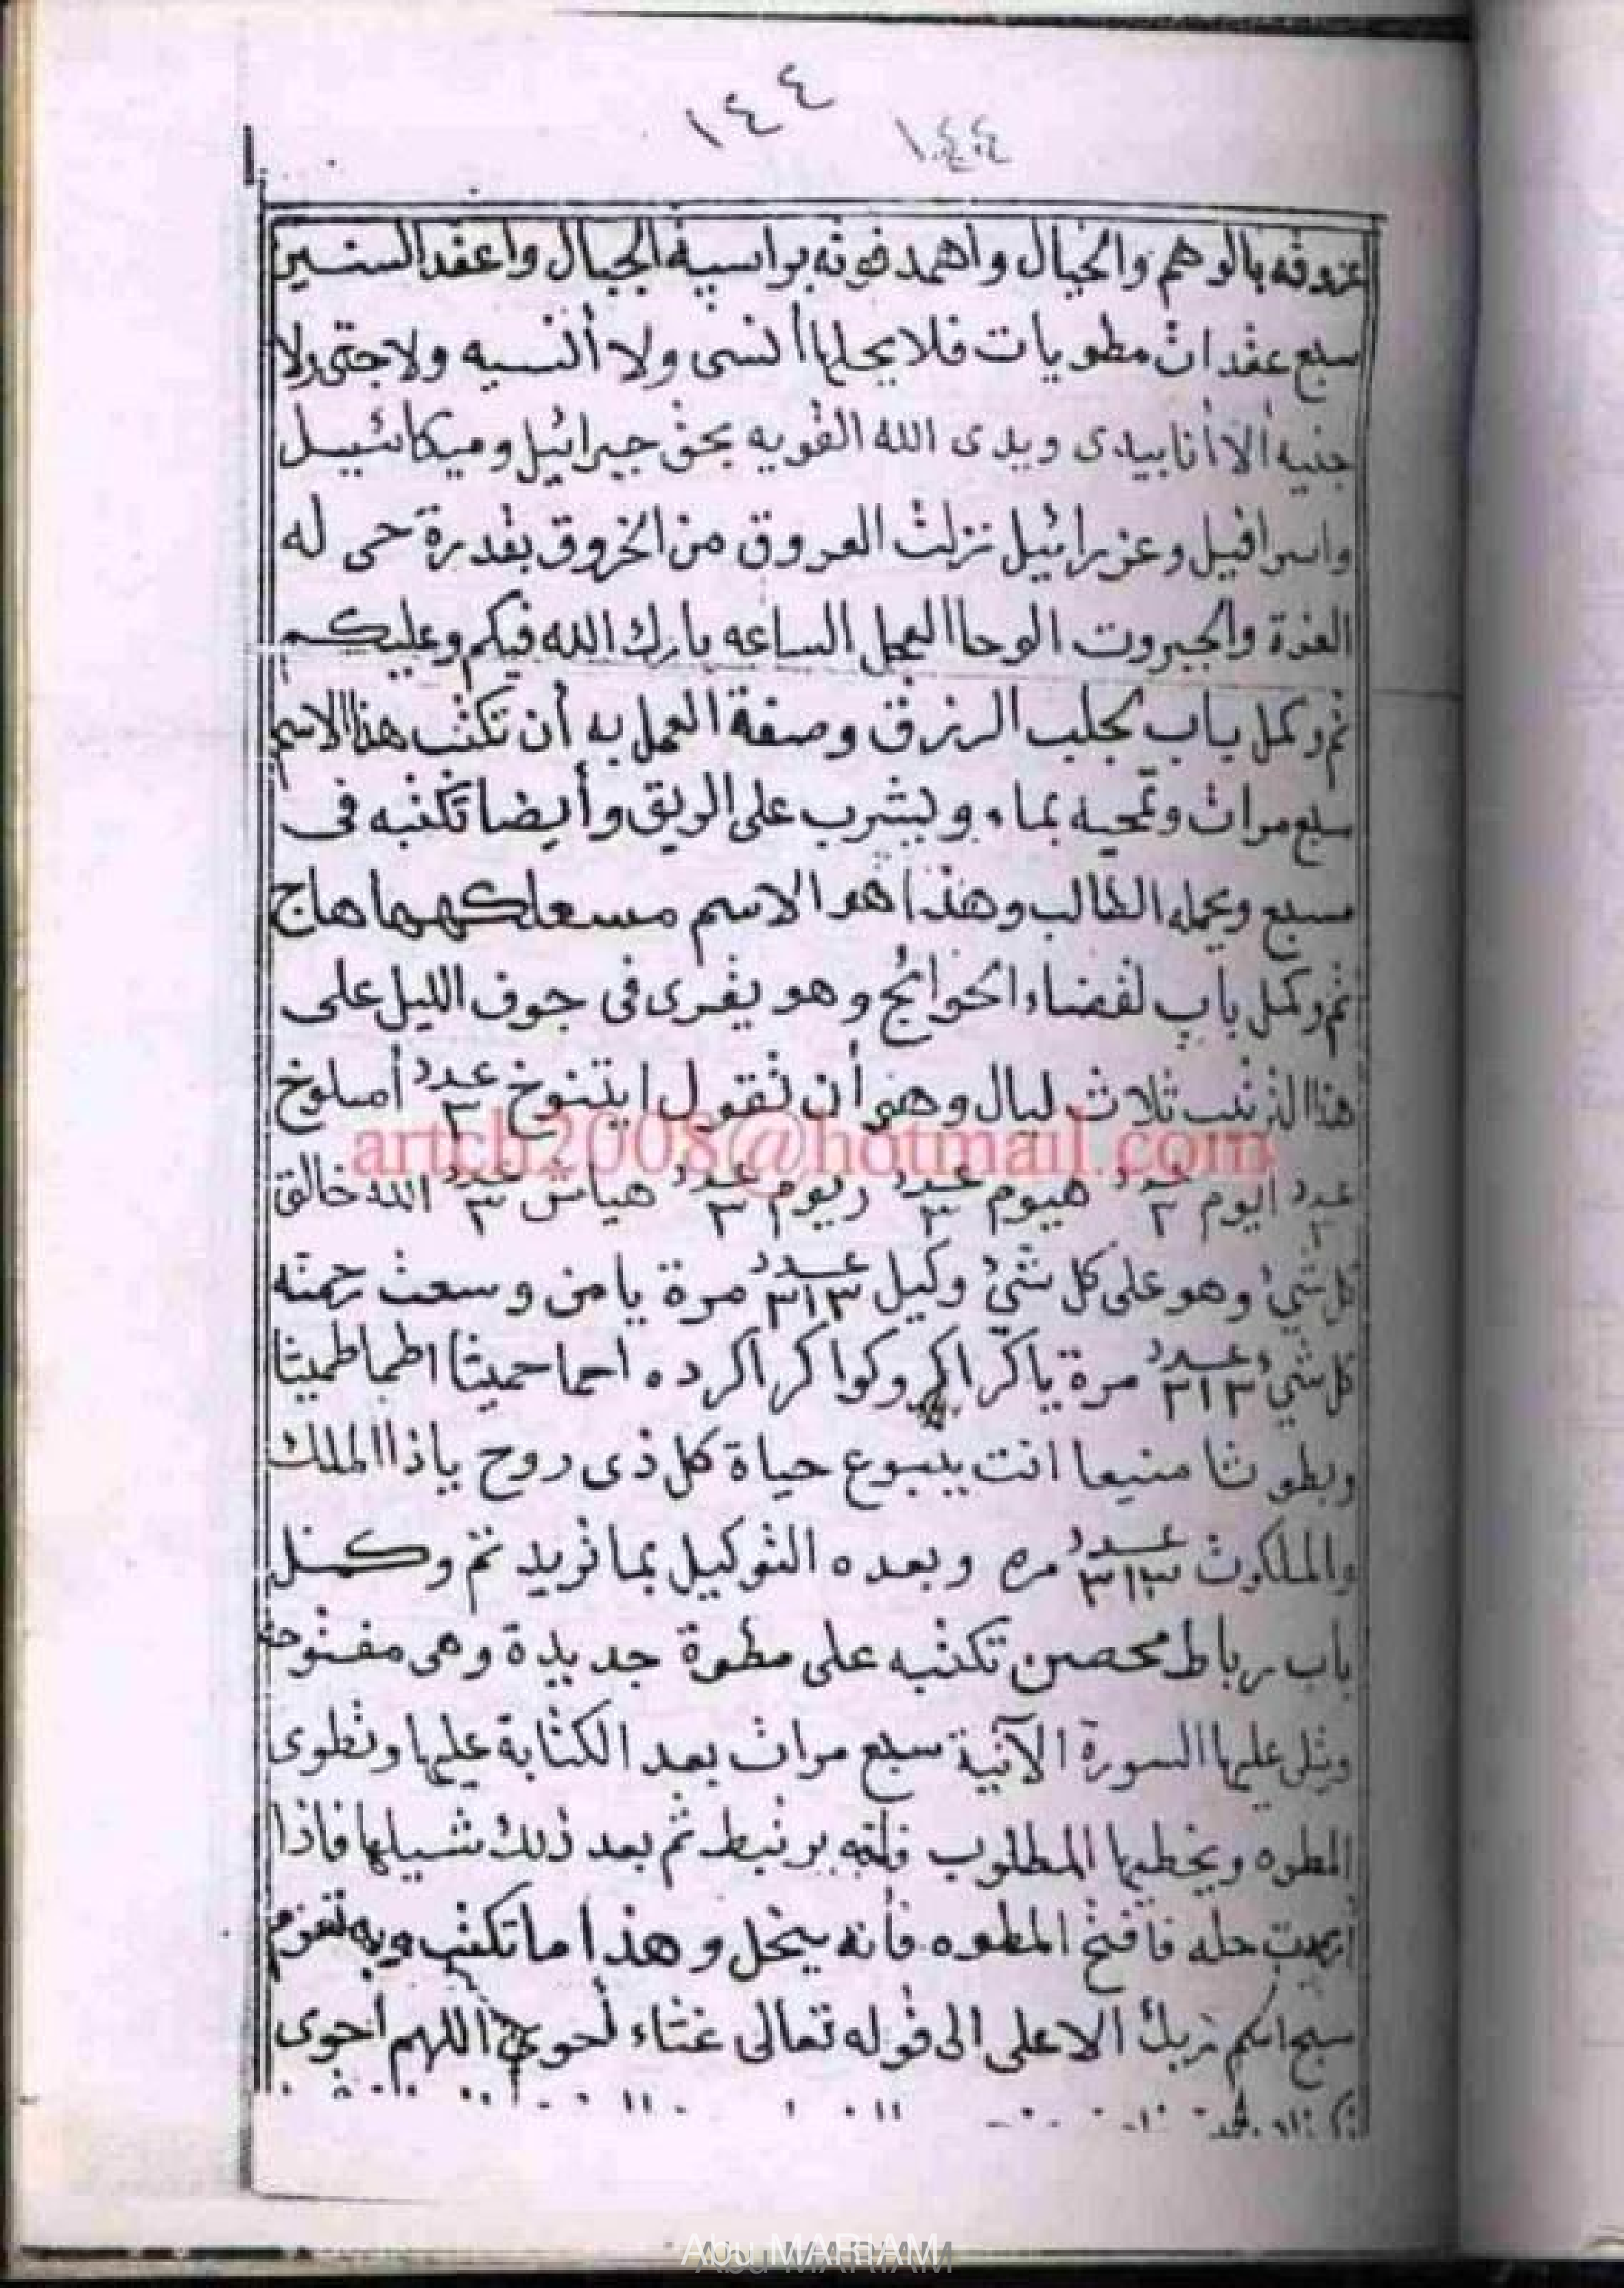 ١٤٤ ١٤٤
عروقه بالوهم والخيال واهمد قوته براسية الجبال واعقد السنين
سبع عقدات مطويات فلا يحلها أنسى ولا أنسيه ولا جنى ولا
جنيه ألا أنا بيدى ويدى الله القويه بحق جبرائيل وميكائييل
واسرافيل وعزرائيل نزلت العروق من الخروق بقدرة حى له
العزة والجبروت الوحا العجل الساعه بارك الله فيكم وعليكم
تم وكمل باب لجلب الرزق وصفة العمل به أن تكتب هذا الاسم
سبع مرات وتمحيه بماء ويشرب على الريق وأيضا تكتبه فى
مسبع ويحمله الطالب وهذا هو الاسم مسعلكهها هاج
تم وكمل باب لقضاء الحوائج وهو يقرى فى جوف الليل على
هذا الترتيب ثلاث ليال وهى أن تقول ايتنوخ عدد ٣ أملوخ
artcb2008@hotmail.com
عدد ٣ ايوم عدد ٣ هيوم عدد ٣ ريوم عدد ٣ هياش عدد ٣ الله خالق
كل شيئ وهو على كل شيئ وكيل عدد ٣١٣ مرة يا من وسعت رحمته
كل شيئ عدد ٣١٣ مرة يا كراكر وكوا كراكرده احما حميثا اطما طميثا
وبطوثا منيعا انت ينبوع حياة كل ذى روح ياذا الملك
والملكوت عدد ٣١٣ مره وبعده التوكيل بما تريد تم وكمل
باب رباط محصن تكتبه على مطوة جديدة وهى مفتوحة
وتلى عليها السورة الآتية سبع مرات بعد الكتابة عليها وتطوى
المطوه ويخطيها المطلوب فأنه يرتبط ثم بعد ذلك شيلها فاذا
أردت حله فأفتح المطوه فأنه ينحل وهذا ما تكتب وبه تعزم
سبح اسم ربك الاعلى الى قوله تعالى غثاء أحوى اللهم احوى
Abu MARIAM